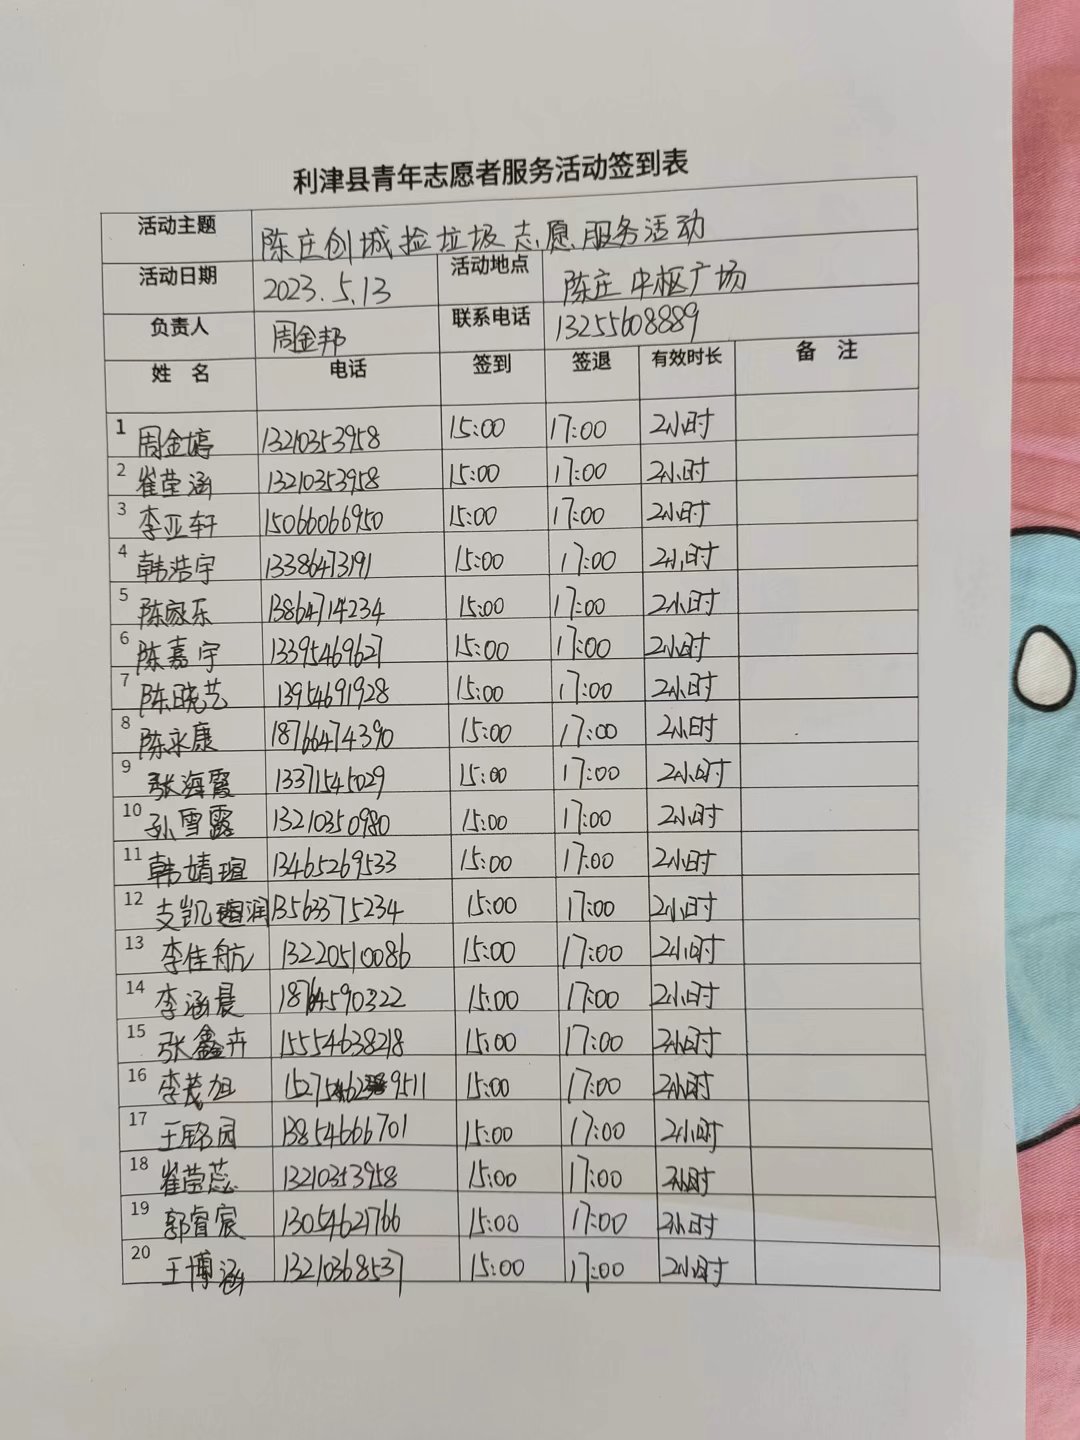 利津县青年志愿者服务活动签到表
活动主题 陈庄创城捡垃圾志愿服务活动
活动日期 2023.5.13 活动地点 陈庄中枢广场
负责人 周金邦 联系电话 13255608889
姓 名 电话 签到 签退 有效时长 备 注
1 周金婷 13210353958 15:00 17:00 2小时
2 崔莹涵 13210353958 15:00 17:00 2小时
3 李亚轩 15066066950 15:00 17:00 2小时
4 韩浩宇 13386473191 15:00 17:00 2小时
5 陈家乐 13864714234 15:00 17:00 2小时
6 陈嘉宇 13395469627 15:00 17:00 2小时
7 陈晓艺 13954691928 15:00 17:00 2小时
8 陈永康 18766474390 15:00 17:00 2小时
9 张海霞 13371545029 15:00 17:00 2小时
10 孙雪露 13210350980 15:00 17:00 2小时
11 韩婧瑄 13465269533 15:00 17:00 2小时
12 支凯润 13563375234 15:00 17:00 2小时
13 李佳航 13220510086 15:00 17:00 2小时
14 李涵晨 18764590322 15:00 17:00 2小时
15 张鑫卉 15554638218 15:00 17:00 2小时
16 李茂旭 15:00 17:00 2小时
17 王铭园 13854666701 15:00 17:00 2小时
18 崔莹蕊 13210353958 15:00 17:00 2小时
19 郭睿宸 13054621766 15:00 17:00 2小时
20 王博涵 13210368537 15:00 17:00 2小时